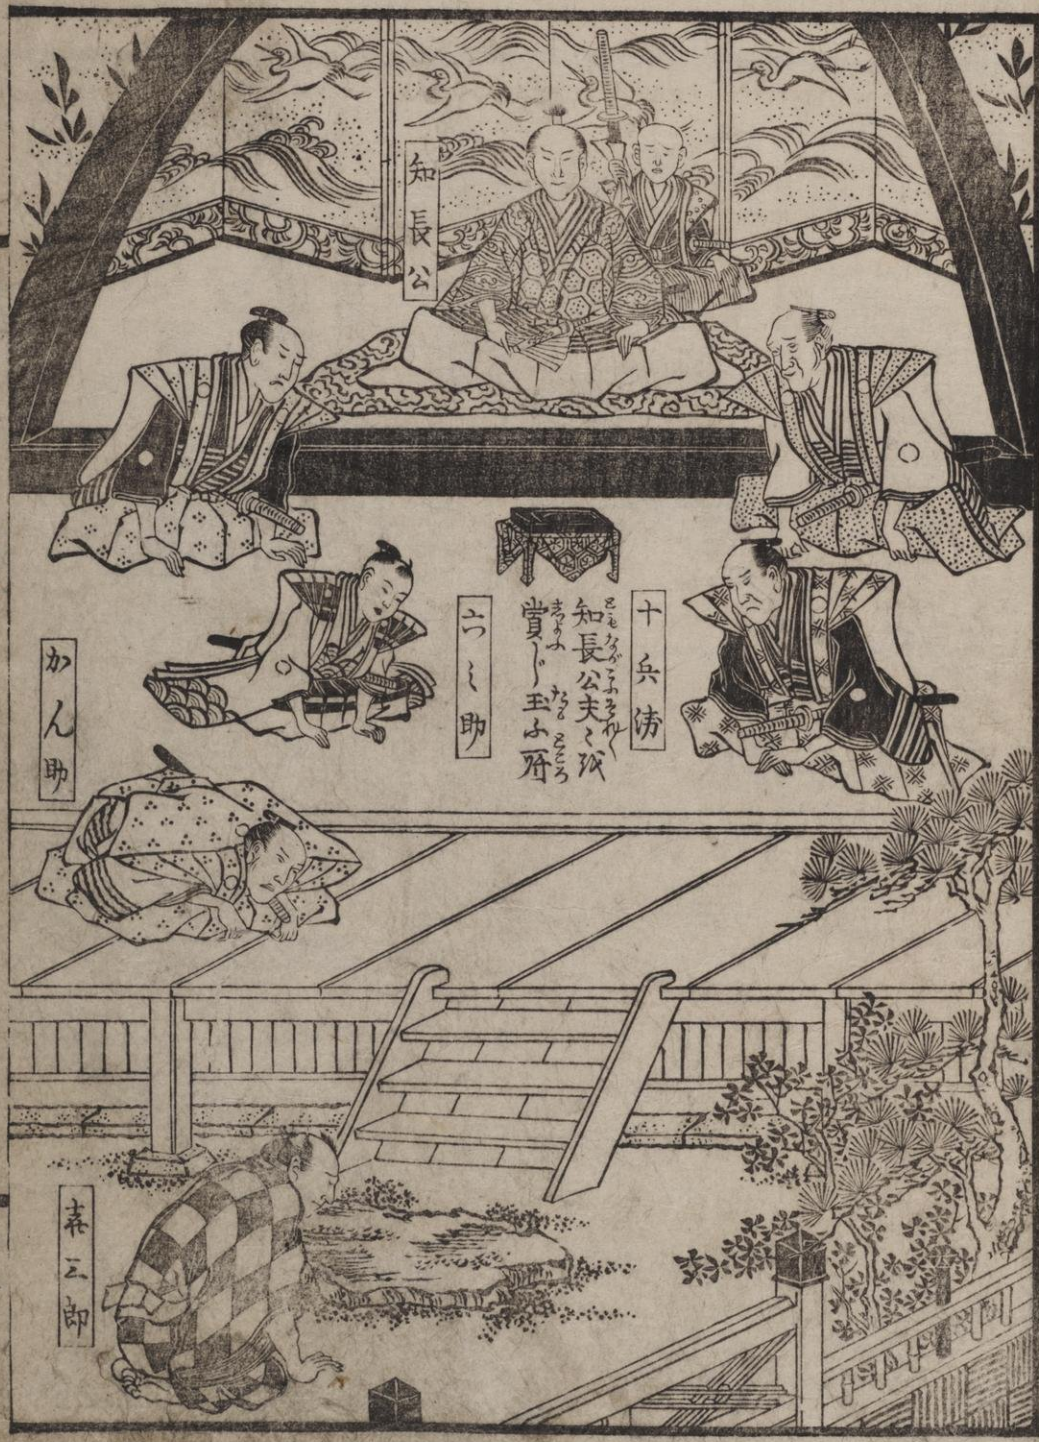 知長公
十兵衛
知長公夫〻を
賞し玉ふ所
六之助
かん助
喜三郎